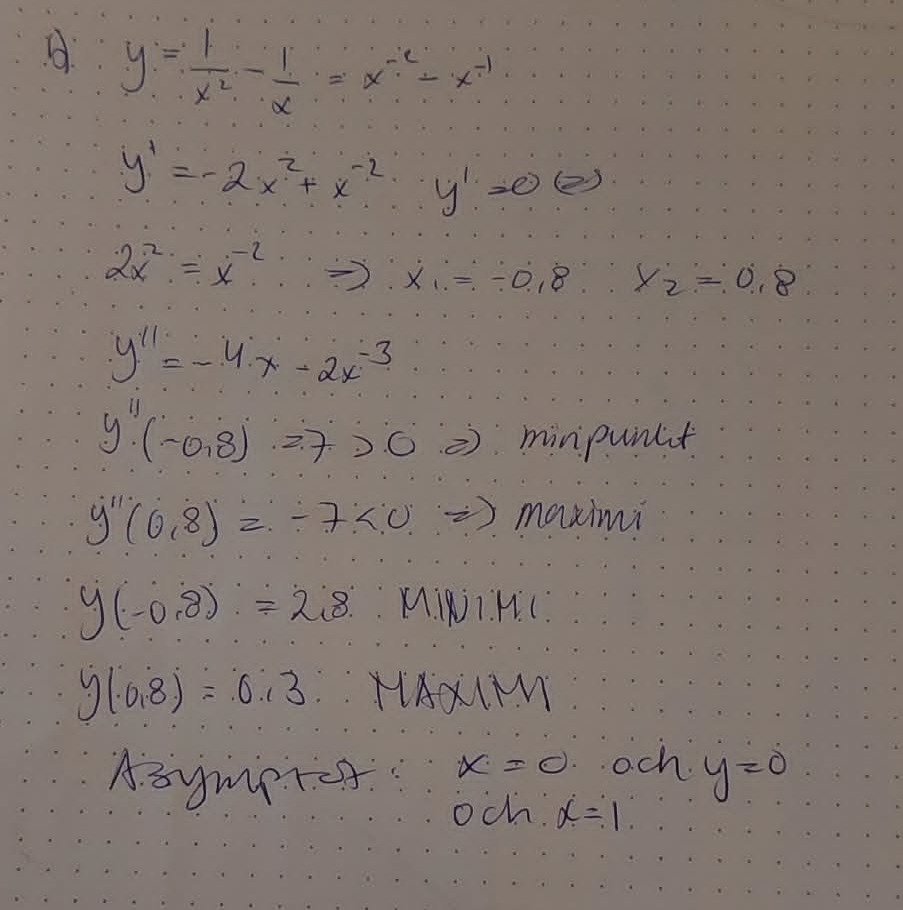 b) y = 1/x² - 1/x = x⁻² - x⁻¹
y' = -2x² + x⁻² y' = 0 (=)
2x² = x⁻² => x₁ = -0,8 x₂ = 0,8
y'' = -4x - 2x⁻³
y''(-0,8) = 7 > 0 => minpunkt
y''(0,8) = -7 < 0 => maximi
y(-0,8) = 2,8 MINIMI
y(0,8) = 0,3 MAXIMI
Asymptot: x = 0 och y = 0
och x = 1